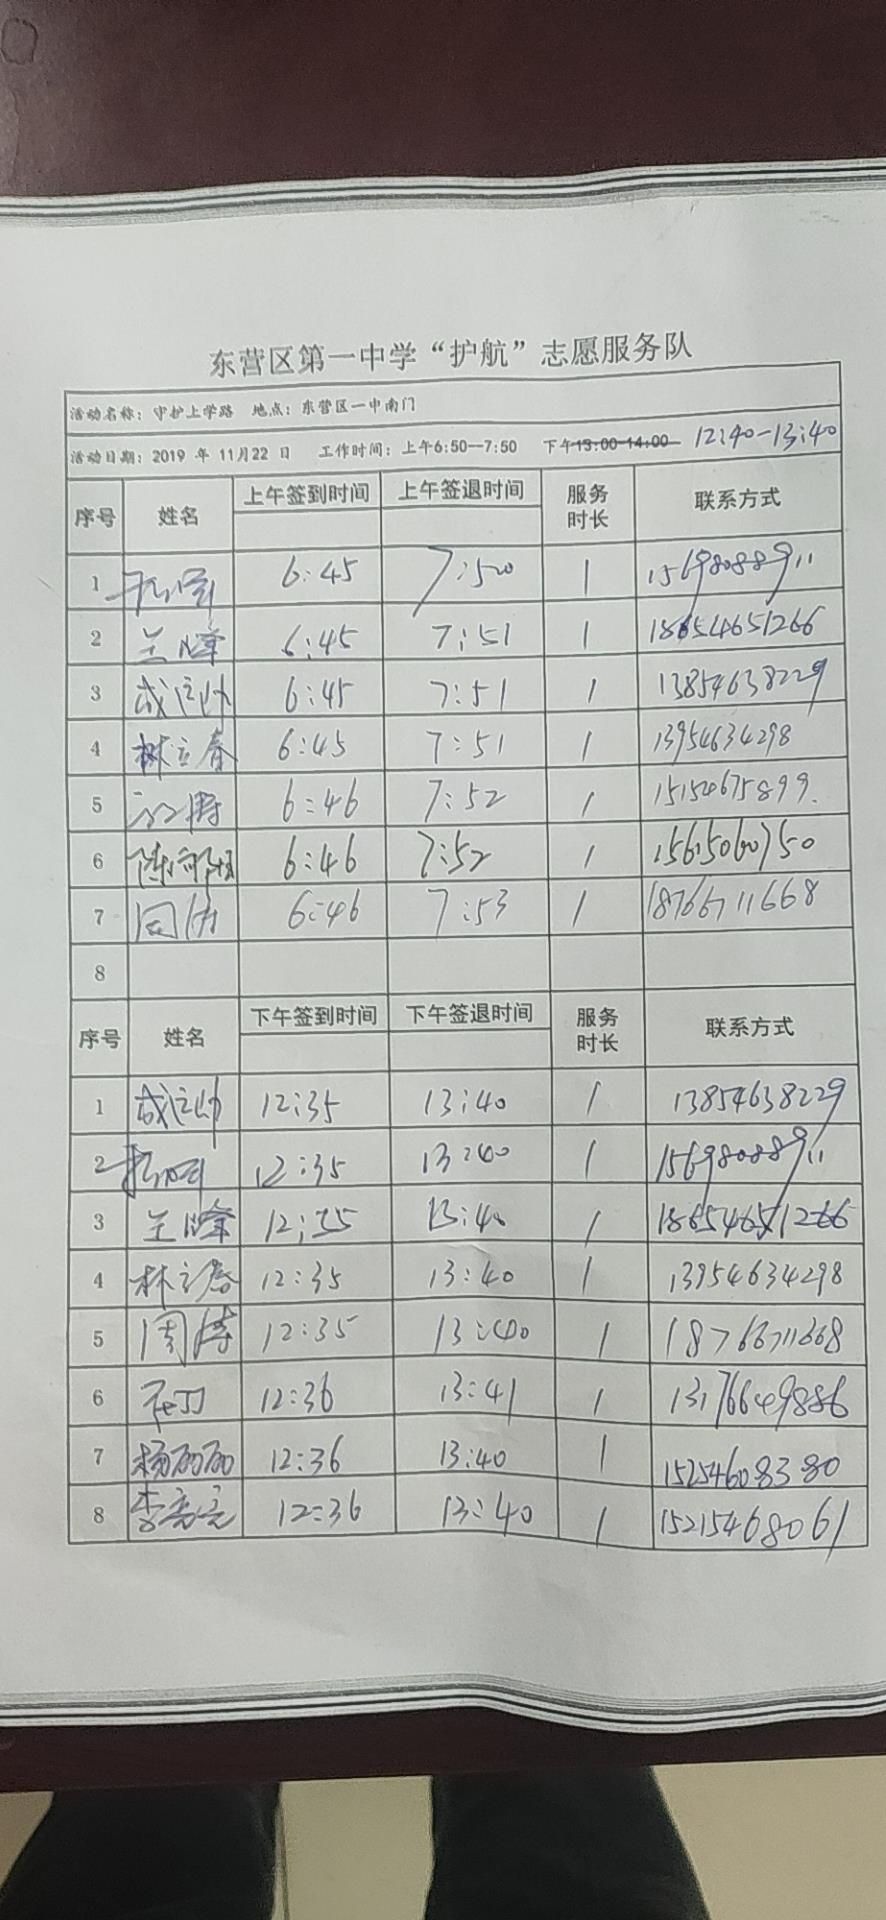 东营区第一中学“护航”志愿服务队
活动名称：守护上学路 地点：东营区一中南门
活动日期：2019 年 11月22 日 工作时间：上午6:50--7:50 下午13:00-14:00 12:40-13:40
序号 姓名 上午签到时间 上午签退时间 服务时长 联系方式
1 6:45 7:50 1 15698088911
2 王峰 6:45 7:51 1 18654651266
3 成立帅 6:45 7:51 1 13854638229
4 林立春 6:45 7:51 1 13954634298
5 6:46 7:52 1 15154675899
6 6:46 7:52 1 15615060750
7 6:46 7:53 1 18766711668
8
序号 姓名 下午签到时间 下午签退时间 服务时长 联系方式
1 成立帅 12:35 13:40 1 13854638229
2 12:35 13:40 1 15698088911
3 王峰 12:35 13:40 1 18654651266
4 林立春 12:35 13:40 1 13954634298
5 周涛 12:35 13:40 1 18766711668
6 12:36 13:41 1 13176649886
7 杨丽丽 12:36 13:40 1 15254608380
8 李亮亮 12:36 13:40 1 15215468061